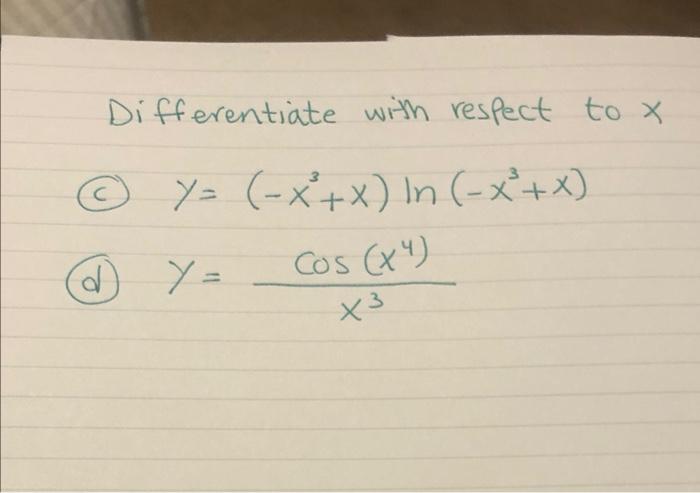 Differentiate with respect to x
(c) y = (-x³+x) ln (-x³+x)
(d) y = cos (x⁴) / x³